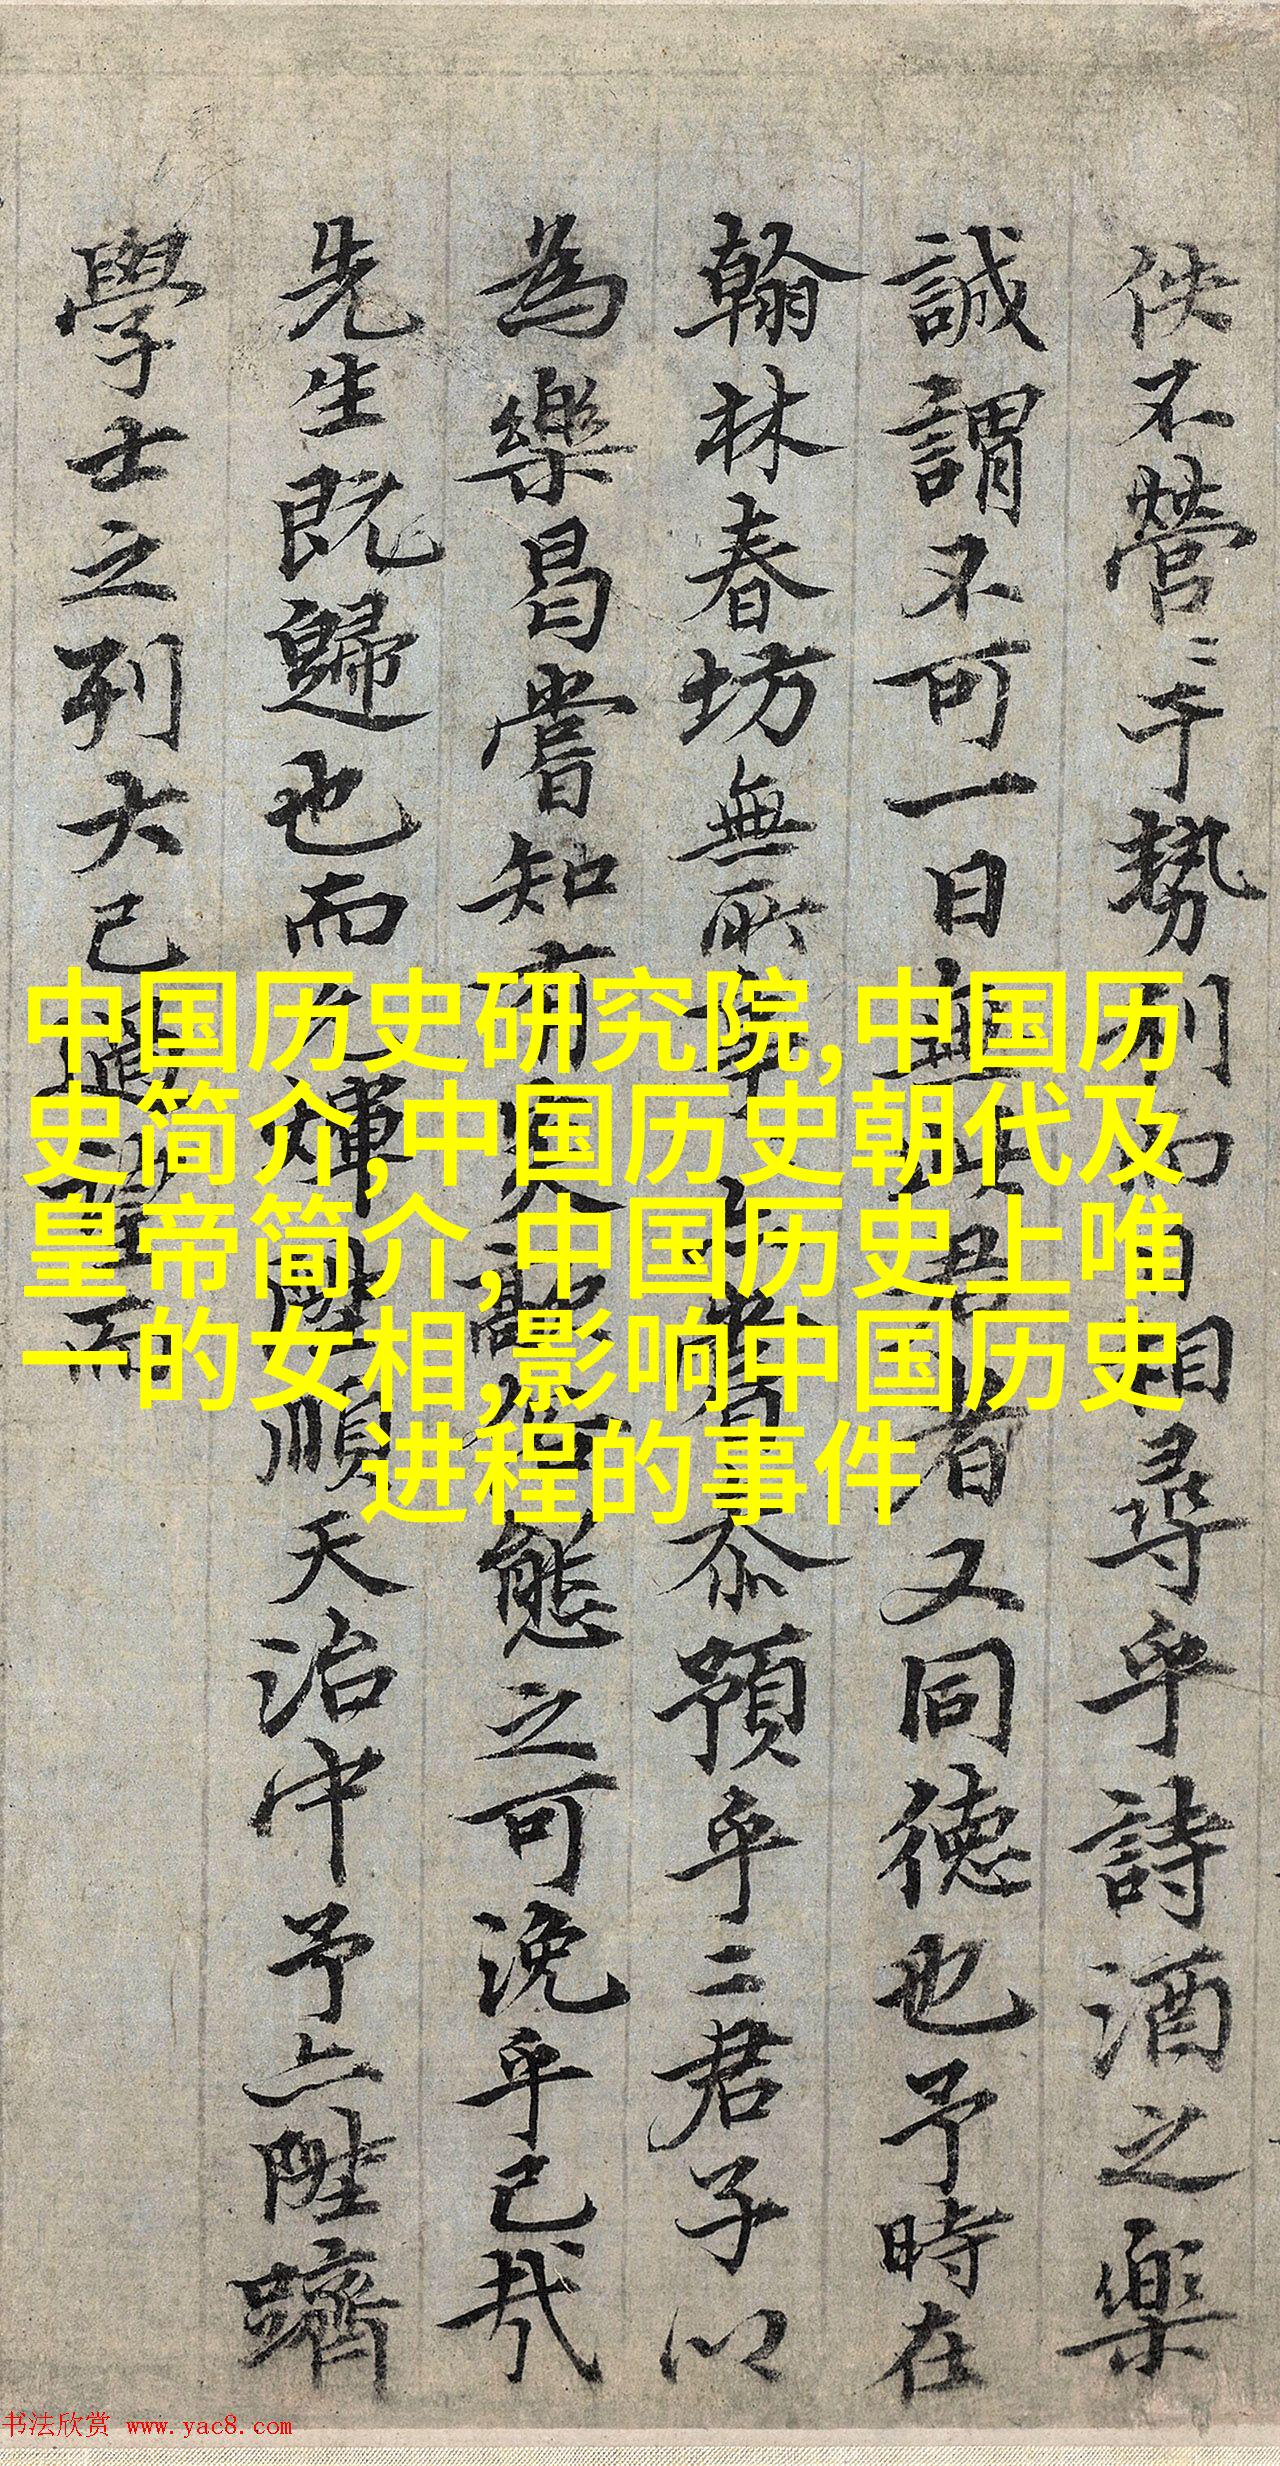 佚不營〻于勢利而自相尋乎詩酒之樂
誠謂不可一日無此君者又同德也予時在
翰林春坊無所事
預乎二君子以
為樂曷嘗知有
態之可浼乎已哉
先生既歸也而
順天治中予亦陞躋
學士之列大己
而
中国历史研究院,中国历
史简介,中国历史朝代及
皇帝简介,中国历史上唯
一的女相,影响中国历史
进程的事件
书法欣赏 www.yac8.com